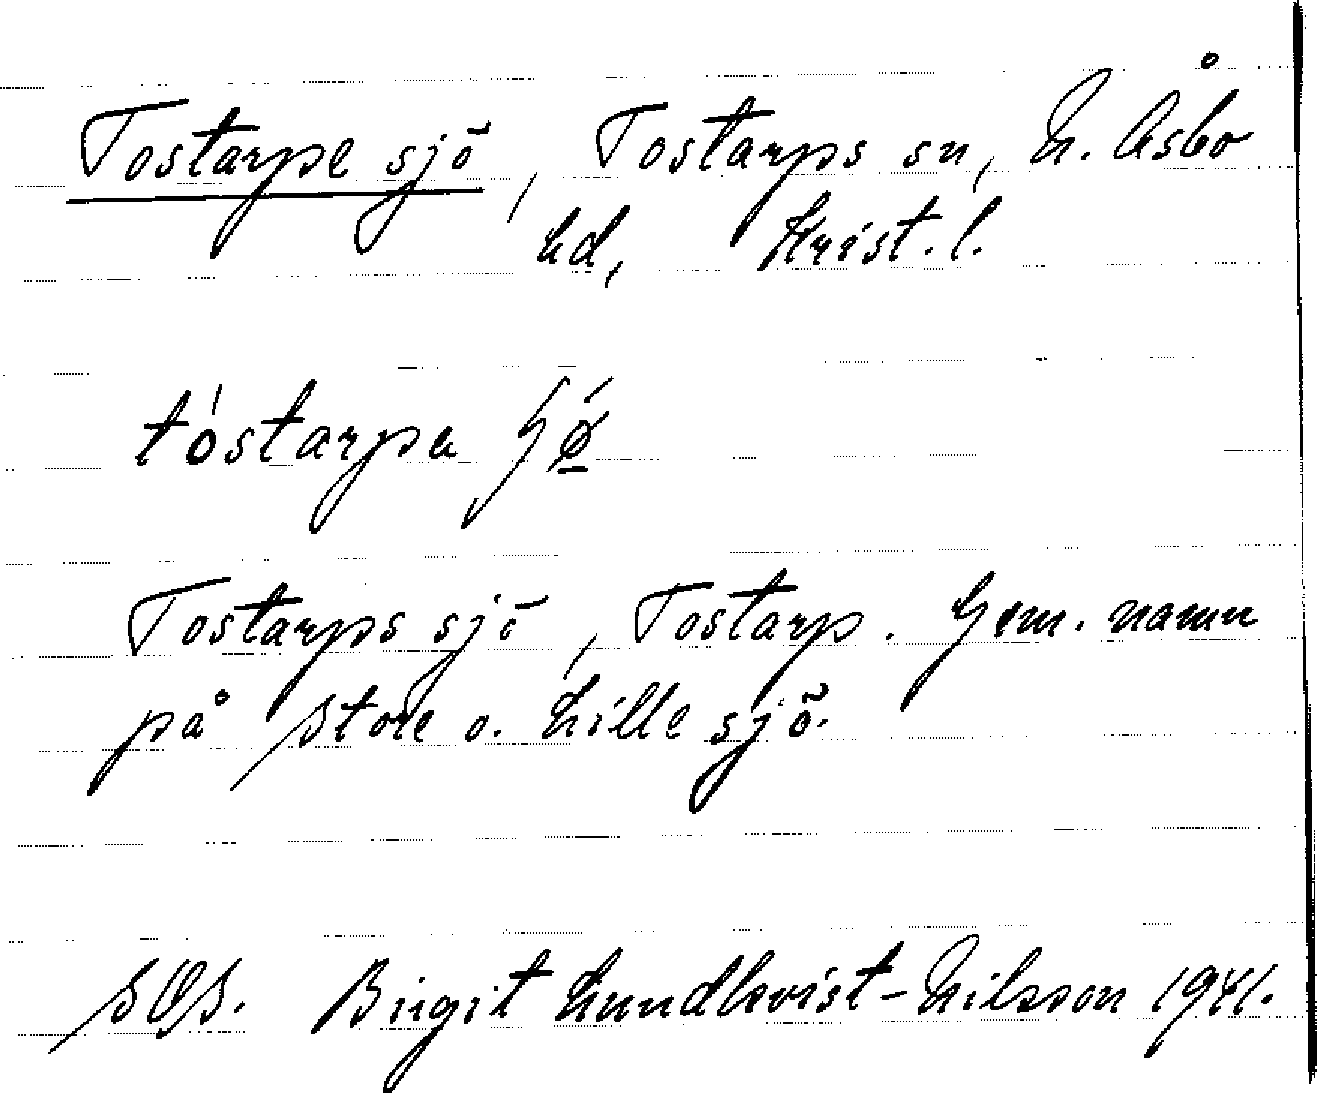 Tostarpe sjö, Tostarps sn, N. Åsbo
hd, Krist. l.
tóstarpa ʃǿ
Tostarps sjö, Tostarp. Gem. namn
på Store o. Lille sjö.
SOS. Birgit Lundkvist-Nilsson 1941.